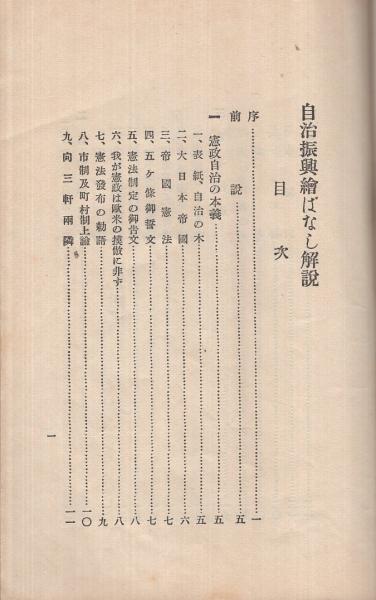 自治振興繪ばなし解説
目次
序……一
前説……五
一 憲政自治の本義……五
一、表紙、自治の木……五
二、大日本帝國……六
三、帝國憲法……七
四、五ケ條御誓文……七
五、憲法制定の御告文……八
六、我が憲政は歐米の摸倣に非ず……八
七、憲法發布の勅語……九
八、市制及町村制上諭……一〇
九、向三軒兩隣……一一
一